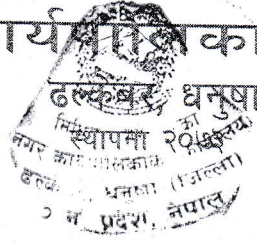 र्यपालिका
ढल्केवर, धनुषा
स्थापना २०७३
नगर कार्यपालिकाको
धनुषा (जिल्ला)
२ नं प्रदेश, नेपाल